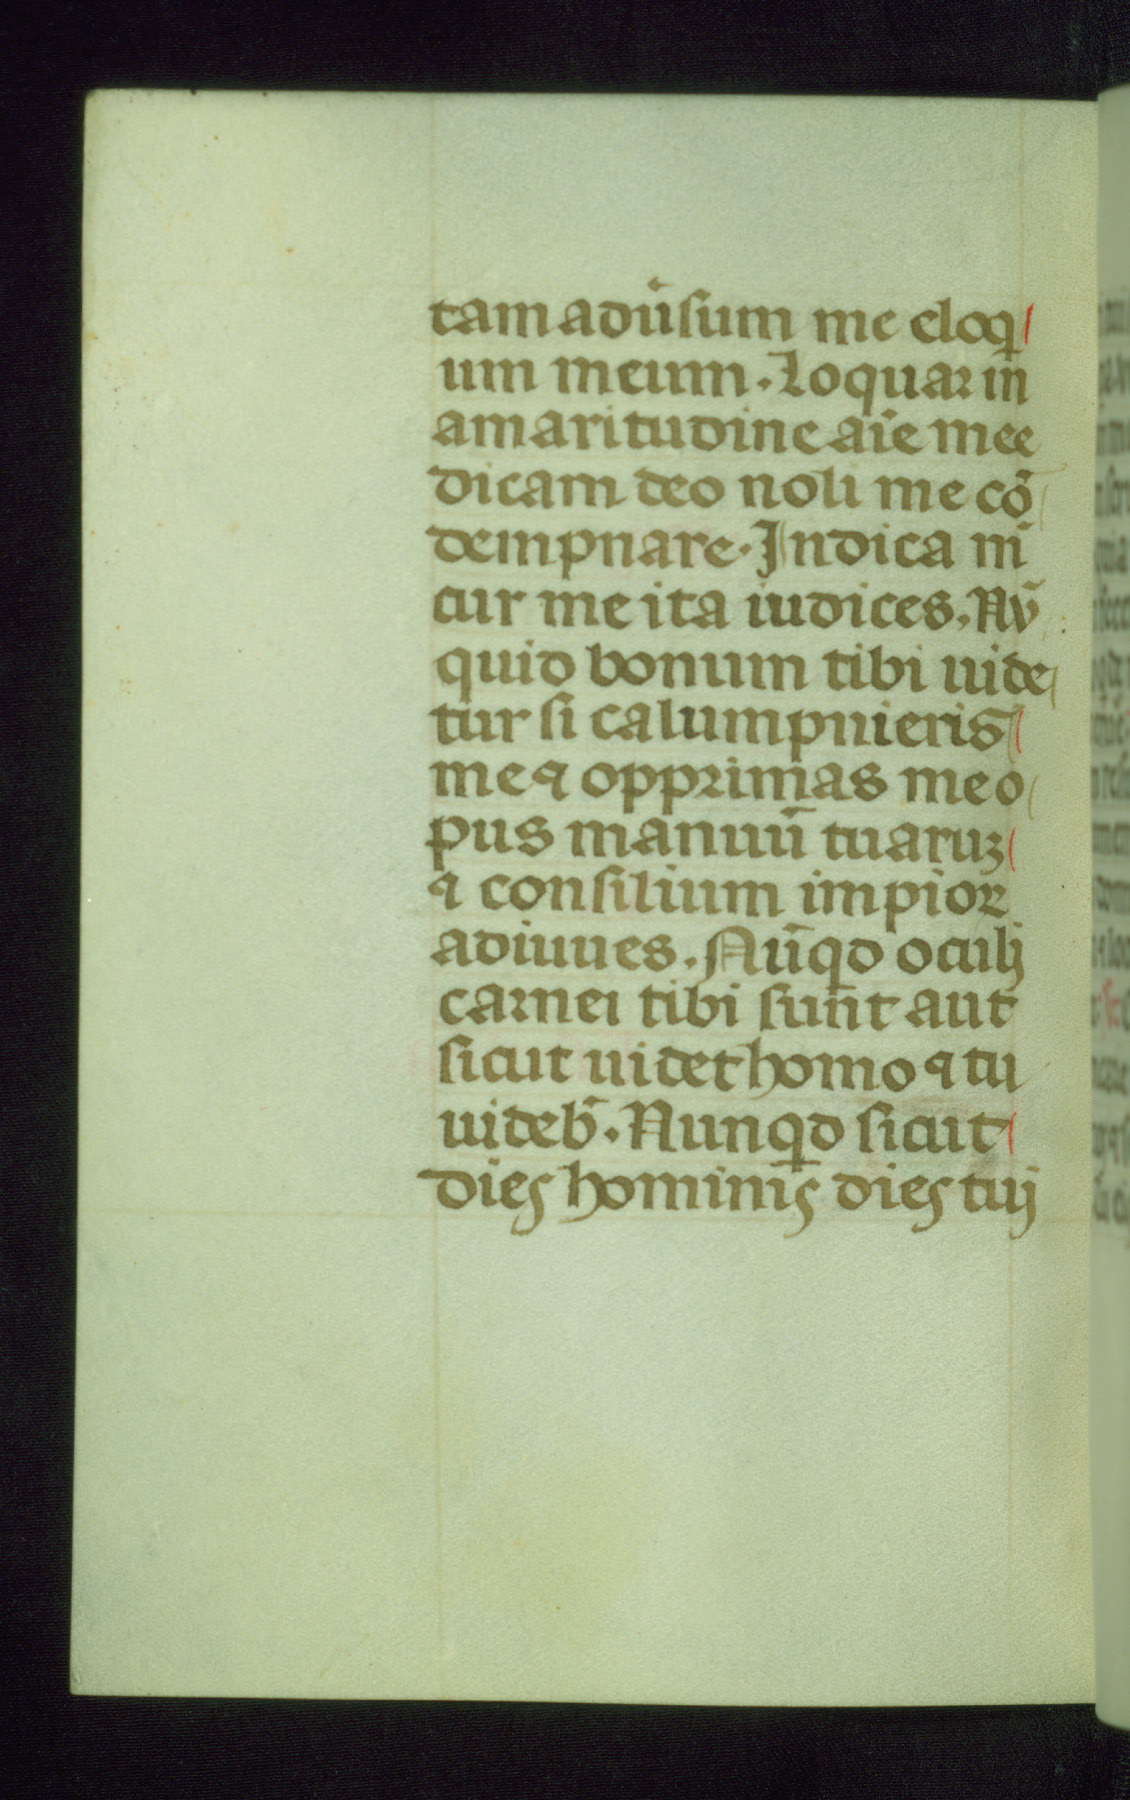 tam adu͛sum me eloq
um meum. Loquar in
amaritudine aīe mee
dicam deo noli me cō
dempnare. Indica m̄
cur me ita iudices. Nū
quid bonum tibi uide
tur si calumpnieris
me ⁊ opprimas me o
pus manuū tuaruꝫ
⁊ consilium impioꝝ
adiuues. Nūqd oculij
carnei tibi sunt aut
sicut uidet homo ⁊ tu
uideb̄. Nunqd sicut
dies hominis dies tuij